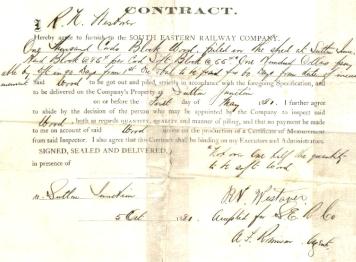 CONTRACT.
I R. N. Westover
Hereby agree to furnish to the SOUTH EASTERN RAILWAY COMPANY.
One Thousand Cords Block Wood, piled on the spot at Sutton Junc
Hard Block @ per Cord Soft Block @ One Hundred Dollars pay
able by the Co 90 days from 1st
amount Wood to be got out and piled, strictly in accordance with the foregoing Specification, and
to be delivered on the Company's Property at Sutton Junction
on or before the First day of May 1880. I further agree
to abide by the decision of the person who may be appointed by the Company to inspect said
Wood, both as regards QUANTITY, QUALITY and manner of piling, and that no payment be made
to me on account of said Wood unless on the production of a Certificate of Measurement
from said Inspector. I also agree that this Contract shall be binding on my Executors and Administrators.
SIGNED, SEALED AND DELIVERED,
in presence of
Not over one half the quantity
to be soft wood
at Sutton Junction
R N Westover
5 Oct 1880.
Accepted for S E R Co
Agent